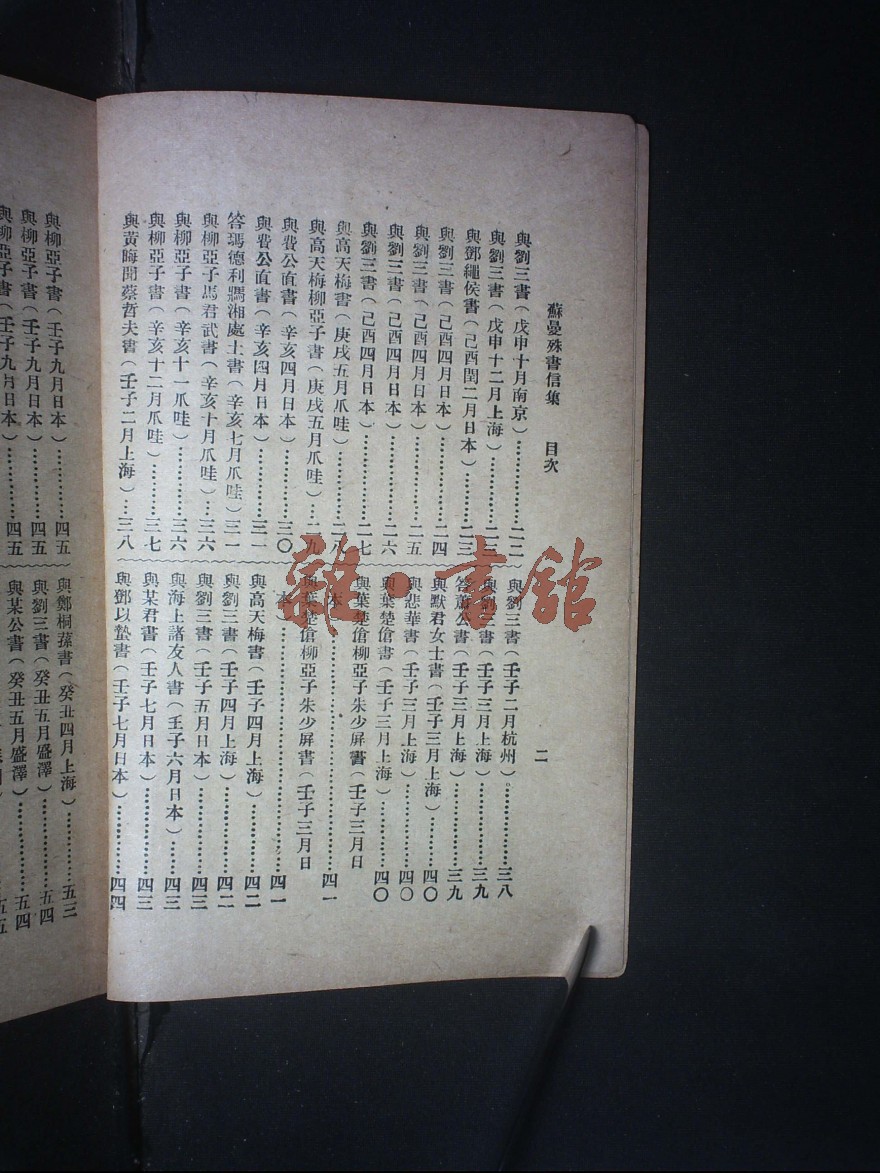 蘇曼殊書信集　目次
二
與劉三書（戊申十月南京）…………二二
與劉三書（戊申十二月上海）…………二三
與鄧繩侯書（己酉閏二月日本）…………二三
與劉三書（己酉四月日本）…………二四
與劉三書（己酉四月日本）…………二五
與劉三書（己酉四月日本）…………二六
與劉三書（己酉四月日本）…………二七
與高天梅書（庚戌五月爪哇）…………二八
與高天梅柳亞子書（庚戌五月爪哇）…二九
與費公直書（辛亥四月日本）…………三〇
與費公直書（辛亥四月日本）…………三一
答瑪德利瑪湘處士書（辛亥七月爪哇）三一
與柳亞子馬君武書（辛亥十月爪哇）…三六
與柳亞子書（辛亥十一爪哇）…………三六
與柳亞子書（辛亥十二月爪哇）………三七
與黃晦聞蔡哲夫書（壬子二月上海）…三八
與劉三書（壬子二月杭州）…………三八
與劉三書（壬子三月上海）…………三九
答蕭公書（壬子三月上海）…………三九
與默君女士書（壬子三月上海）………四〇
與悲華書（壬子三月上海）…………四〇
與葉楚傖書（壬子三月上海）…………四〇
與葉楚傖柳亞子朱少屏書（壬子三月日
本…………四一
與葉楚傖柳亞子朱少屏書（壬子三月日
本…………四一
與高天梅書（壬子四月上海）…………四二
與劉三書（壬子四月上海）…………四二
與劉三書（壬子五月日本）…………四三
與海上諸友人書（壬子六月日本）……四三
與某君書（壬子七月日本）…………四三
與鄧以蟄書（壬子七月日本）…………四四
與柳亞子書（壬子九月日本）…………四五
與柳亞子書（壬子九月日本）…………四五
與柳亞子書（壬子九月日本）…………四五
與鄭桐蓀書（癸丑四月上海）…………五三
與劉三書（癸丑五月盛澤）…………五四
與某公書（癸丑五月盛澤）…………五四
五五
雜·書館